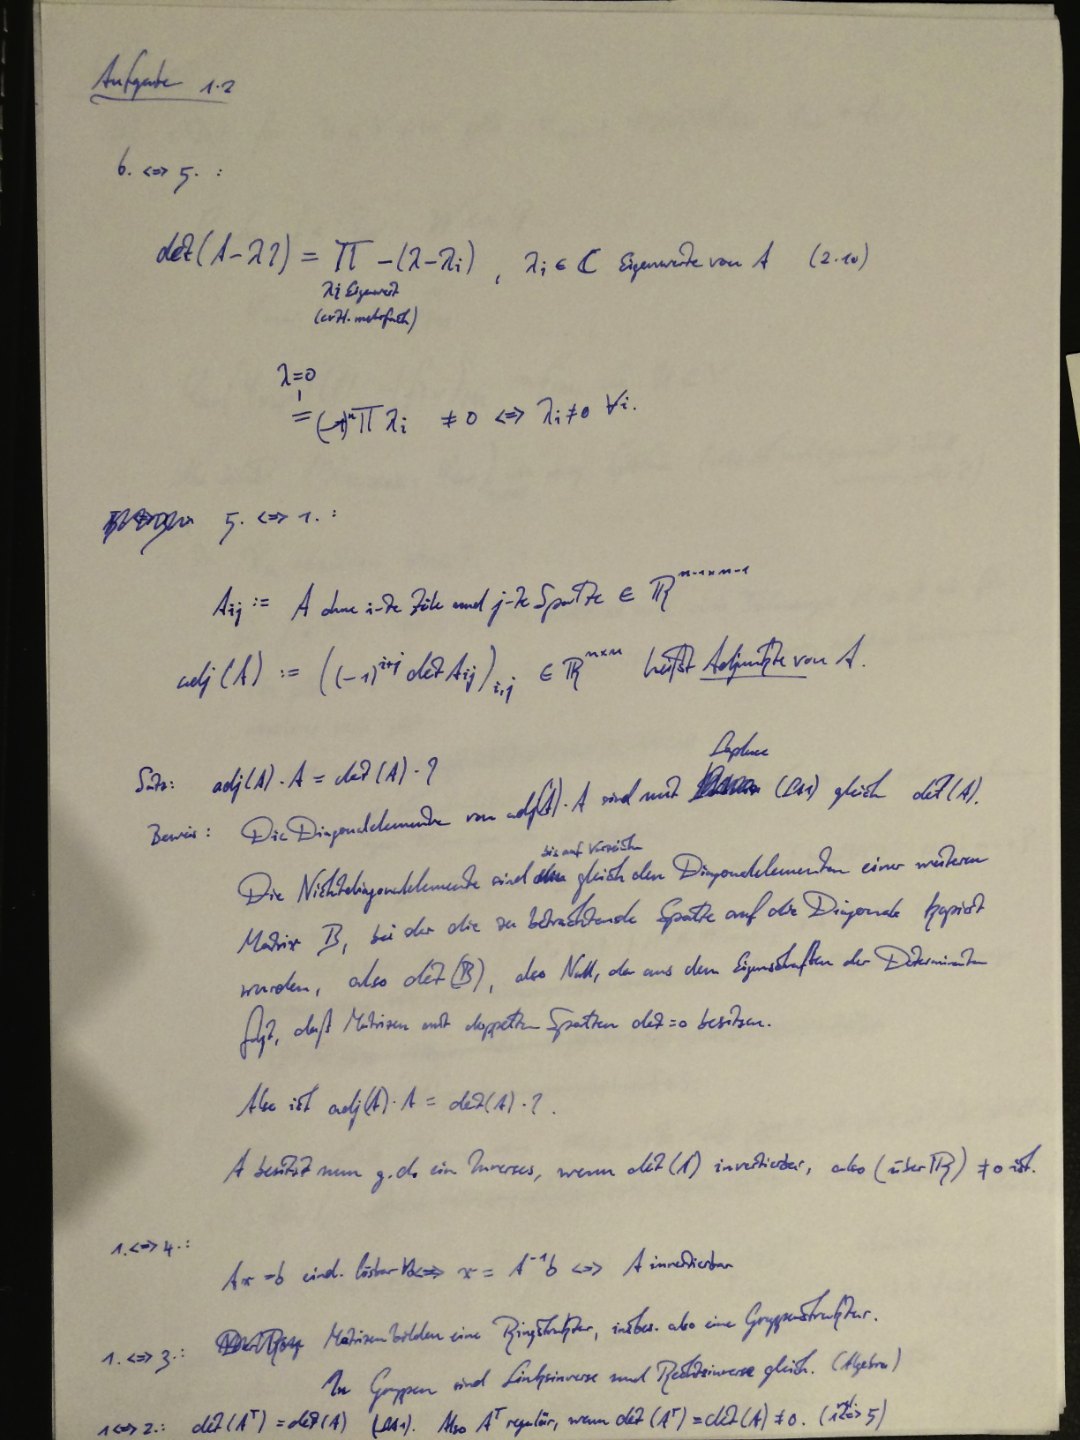 Aufgabe 1.2
6. <=> 5. :
det(A-λ1) = ∏ -(λ-λi) , λi ∈ ℂ Eigenwerte von A (2.10)
λi Eigenwert
(evtl. mehrfach)
λ=0
= (-1)ⁿ∏ λi ≠ 0 <=> λi ≠ 0 ∀i.
5. <=> 1. :
Aij := A ohne i-te Zeile und j-te Spalte ∈ ℝ^{n-1×n-1}
adj(A) := ((-1)^{i+j} det Aij)_{i,j} ∈ ℝ^{n×n} heißt Adjunkte von A.
Satz: adj(A)·A = det(A)·1
Laplace
Beweis: Die Diagonalelemente von adj(A)·A sind mit (LA1) gleich det(A).
bis auf Vorzeichen
Die Nichtdiagonalelemente sind gleich den Diagonalelementen einer weiteren
Matrix B, bei der die zu betrachtende Spalte auf die Diagonale kopiert
wurden, also det(B), also Null, da aus den Eigenschaften der Determinanten
folgt, daß Matrizen mit doppelten Spalten det=0 besitzen.
Also ist adj(A)·A = det(A)·1.
A besitzt nun g.d. ein Inverses, wenn det(A) invertierbar, also (über ℝ) ≠0 ist.
1.<=>4.:
Ax=b eind. lösbar ∀b <=> x = A⁻¹b <=> A invertierbar
1.<=>3.: Matrizen bilden eine Ringstruktur, insbes. also eine Gruppenstruktur.
In Gruppen sind Linksinverse und Rechtsinverse gleich. (Algebra)
1<=>2.: det(Aᵀ)=det(A) (LA1). Also Aᵀ regulär, wenn det(Aᵀ)=det(A)≠0. (1<=>5)